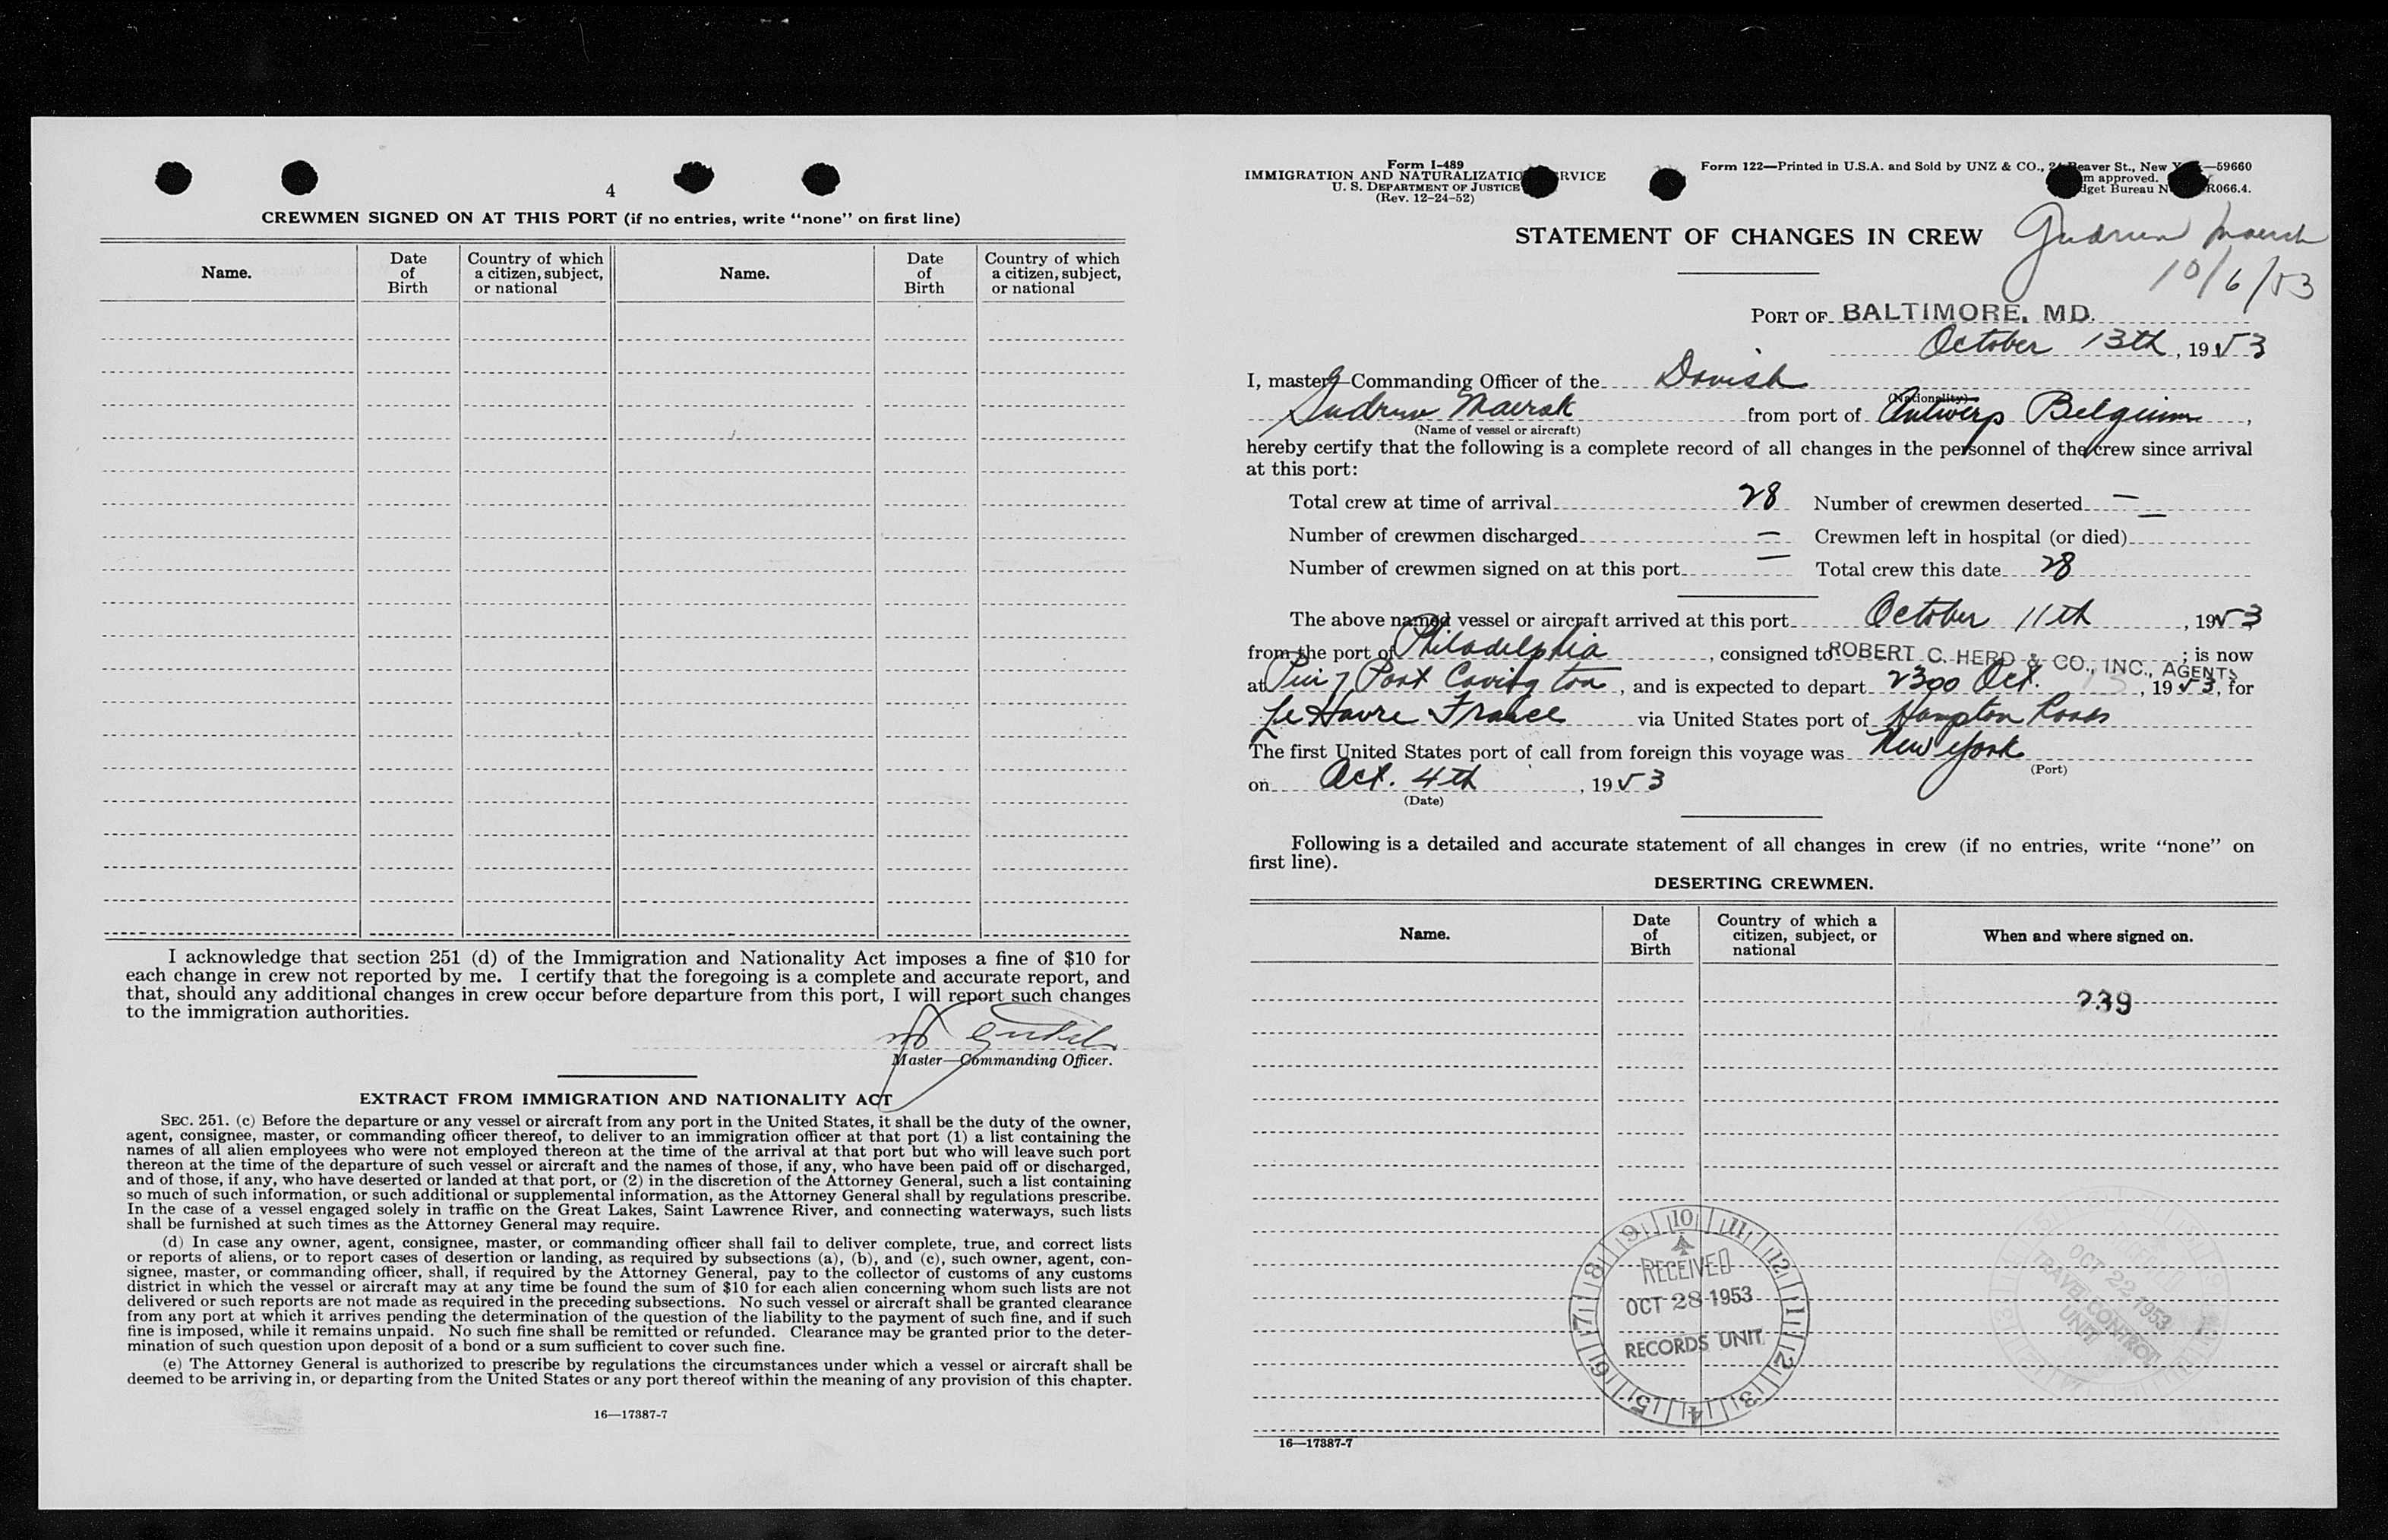 4
CREWMEN SIGNED ON AT THIS PORT (if no entries, write “none” on first line)
Name.
Date
of
Birth
Country of which
a citizen, subject,
or national
Name.
Date
of
Birth
Country of which
a citizen, subject,
or national
I acknowledge that section 251 (d) of the Immigration and Nationality Act imposes a fine of $10 for
each change in crew not reported by me. I certify that the foregoing is a complete and accurate report, and
that, should any additional changes in crew occur before departure from this port, I will report such changes
to the immigration authorities.
Master—Commanding Officer.
EXTRACT FROM IMMIGRATION AND NATIONALITY ACT
SEC. 251. (c) Before the departure or any vessel or aircraft from any port in the United States, it shall be the duty of the owner,
agent, consignee, master, or commanding officer thereof, to deliver to an immigration officer at that port (1) a list containing the
names of all alien employees who were not employed thereon at the time of the arrival at that port but who will leave such port
thereon at the time of the departure of such vessel or aircraft and the names of those, if any, who have been paid off or discharged,
and of those, if any, who have deserted or landed at that port, or (2) in the discretion of the Attorney General, such a list containing
so much of such information, or such additional or supplemental information, as the Attorney General shall by regulations prescribe.
In the case of a vessel engaged solely in traffic on the Great Lakes, Saint Lawrence River, and connecting waterways, such lists
shall be furnished at such times as the Attorney General may require.
(d) In case any owner, agent, consignee, master, or commanding officer shall fail to deliver complete, true, and correct lists
or reports of aliens, or to report cases of desertion or landing, as required by subsections (a), (b), and (c), such owner, agent, con-
signee, master, or commanding officer, shall, if required by the Attorney General, pay to the collector of customs of any customs
district in which the vessel or aircraft may at any time be found the sum of $10 for each alien concerning whom such lists are not
delivered or such reports are not made as required in the preceding subsections. No such vessel or aircraft shall be granted clearance
from any port at which it arrives pending the determination of the question of the liability to the payment of such fine, and if such
fine is imposed, while it remains unpaid. No such fine shall be remitted or refunded. Clearance may be granted prior to the deter-
mination of such question upon deposit of a bond or a sum sufficient to cover such fine.
(e) The Attorney General is authorized to prescribe by regulations the circumstances under which a vessel or aircraft shall be
deemed to be arriving in, or departing from the United States or any port thereof within the meaning of any provision of this chapter.
16—17387-7
Form I-489
IMMIGRATION AND NATURALIZATIO RVICE
U. S. DEPARTMENT OF JUSTICE
(Rev. 12-24-52)
Form 122—Printed in U.S.A. and Sold by UNZ & CO., 24 Beaver St., New Y —59660
m approved.
dget Bureau N R066.4.
STATEMENT OF CHANGES IN CREW Gudrun Maersk
10/6/53
PORT OF BALTIMORE, MD.
October 13th, 1953
I, master—Commanding Officer of the Danish
(Nationality)
Gudrun Maersk from port of Antwerp Belgium,
(Name of vessel or aircraft)
hereby certify that the following is a complete record of all changes in the personnel of the crew since arrival
at this port:
Total crew at time of arrival 28 Number of crewmen deserted —
Number of crewmen discharged — Crewmen left in hospital (or died) —
Number of crewmen signed on at this port — Total crew this date 28
The above named vessel or aircraft arrived at this port October 11th, 1953
from the port of Philadelphia, consigned to ROBERT C. HERD & CO., INC., AGENTS; is now
at Pier 7 Port Covington, and is expected to depart 2300 Oct. 13, 1953, for
Le Havre France via United States port of Hampton Roads
The first United States port of call from foreign this voyage was New York
(Port)
on Oct. 4th, 1953
(Date)
Following is a detailed and accurate statement of all changes in crew (if no entries, write “none” on
first line).
DESERTING CREWMEN.
Name.
Date
of
Birth
Country of which a
citizen, subject, or
national
When and where signed on.
239
9 10 11 12 1 2 3 4 5 6 7 8
RECEIVED
OCT 28 1953
RECORDS UNIT
OCT 22 1953
TRAVEL CONTROL
UNIT
16—17387-7